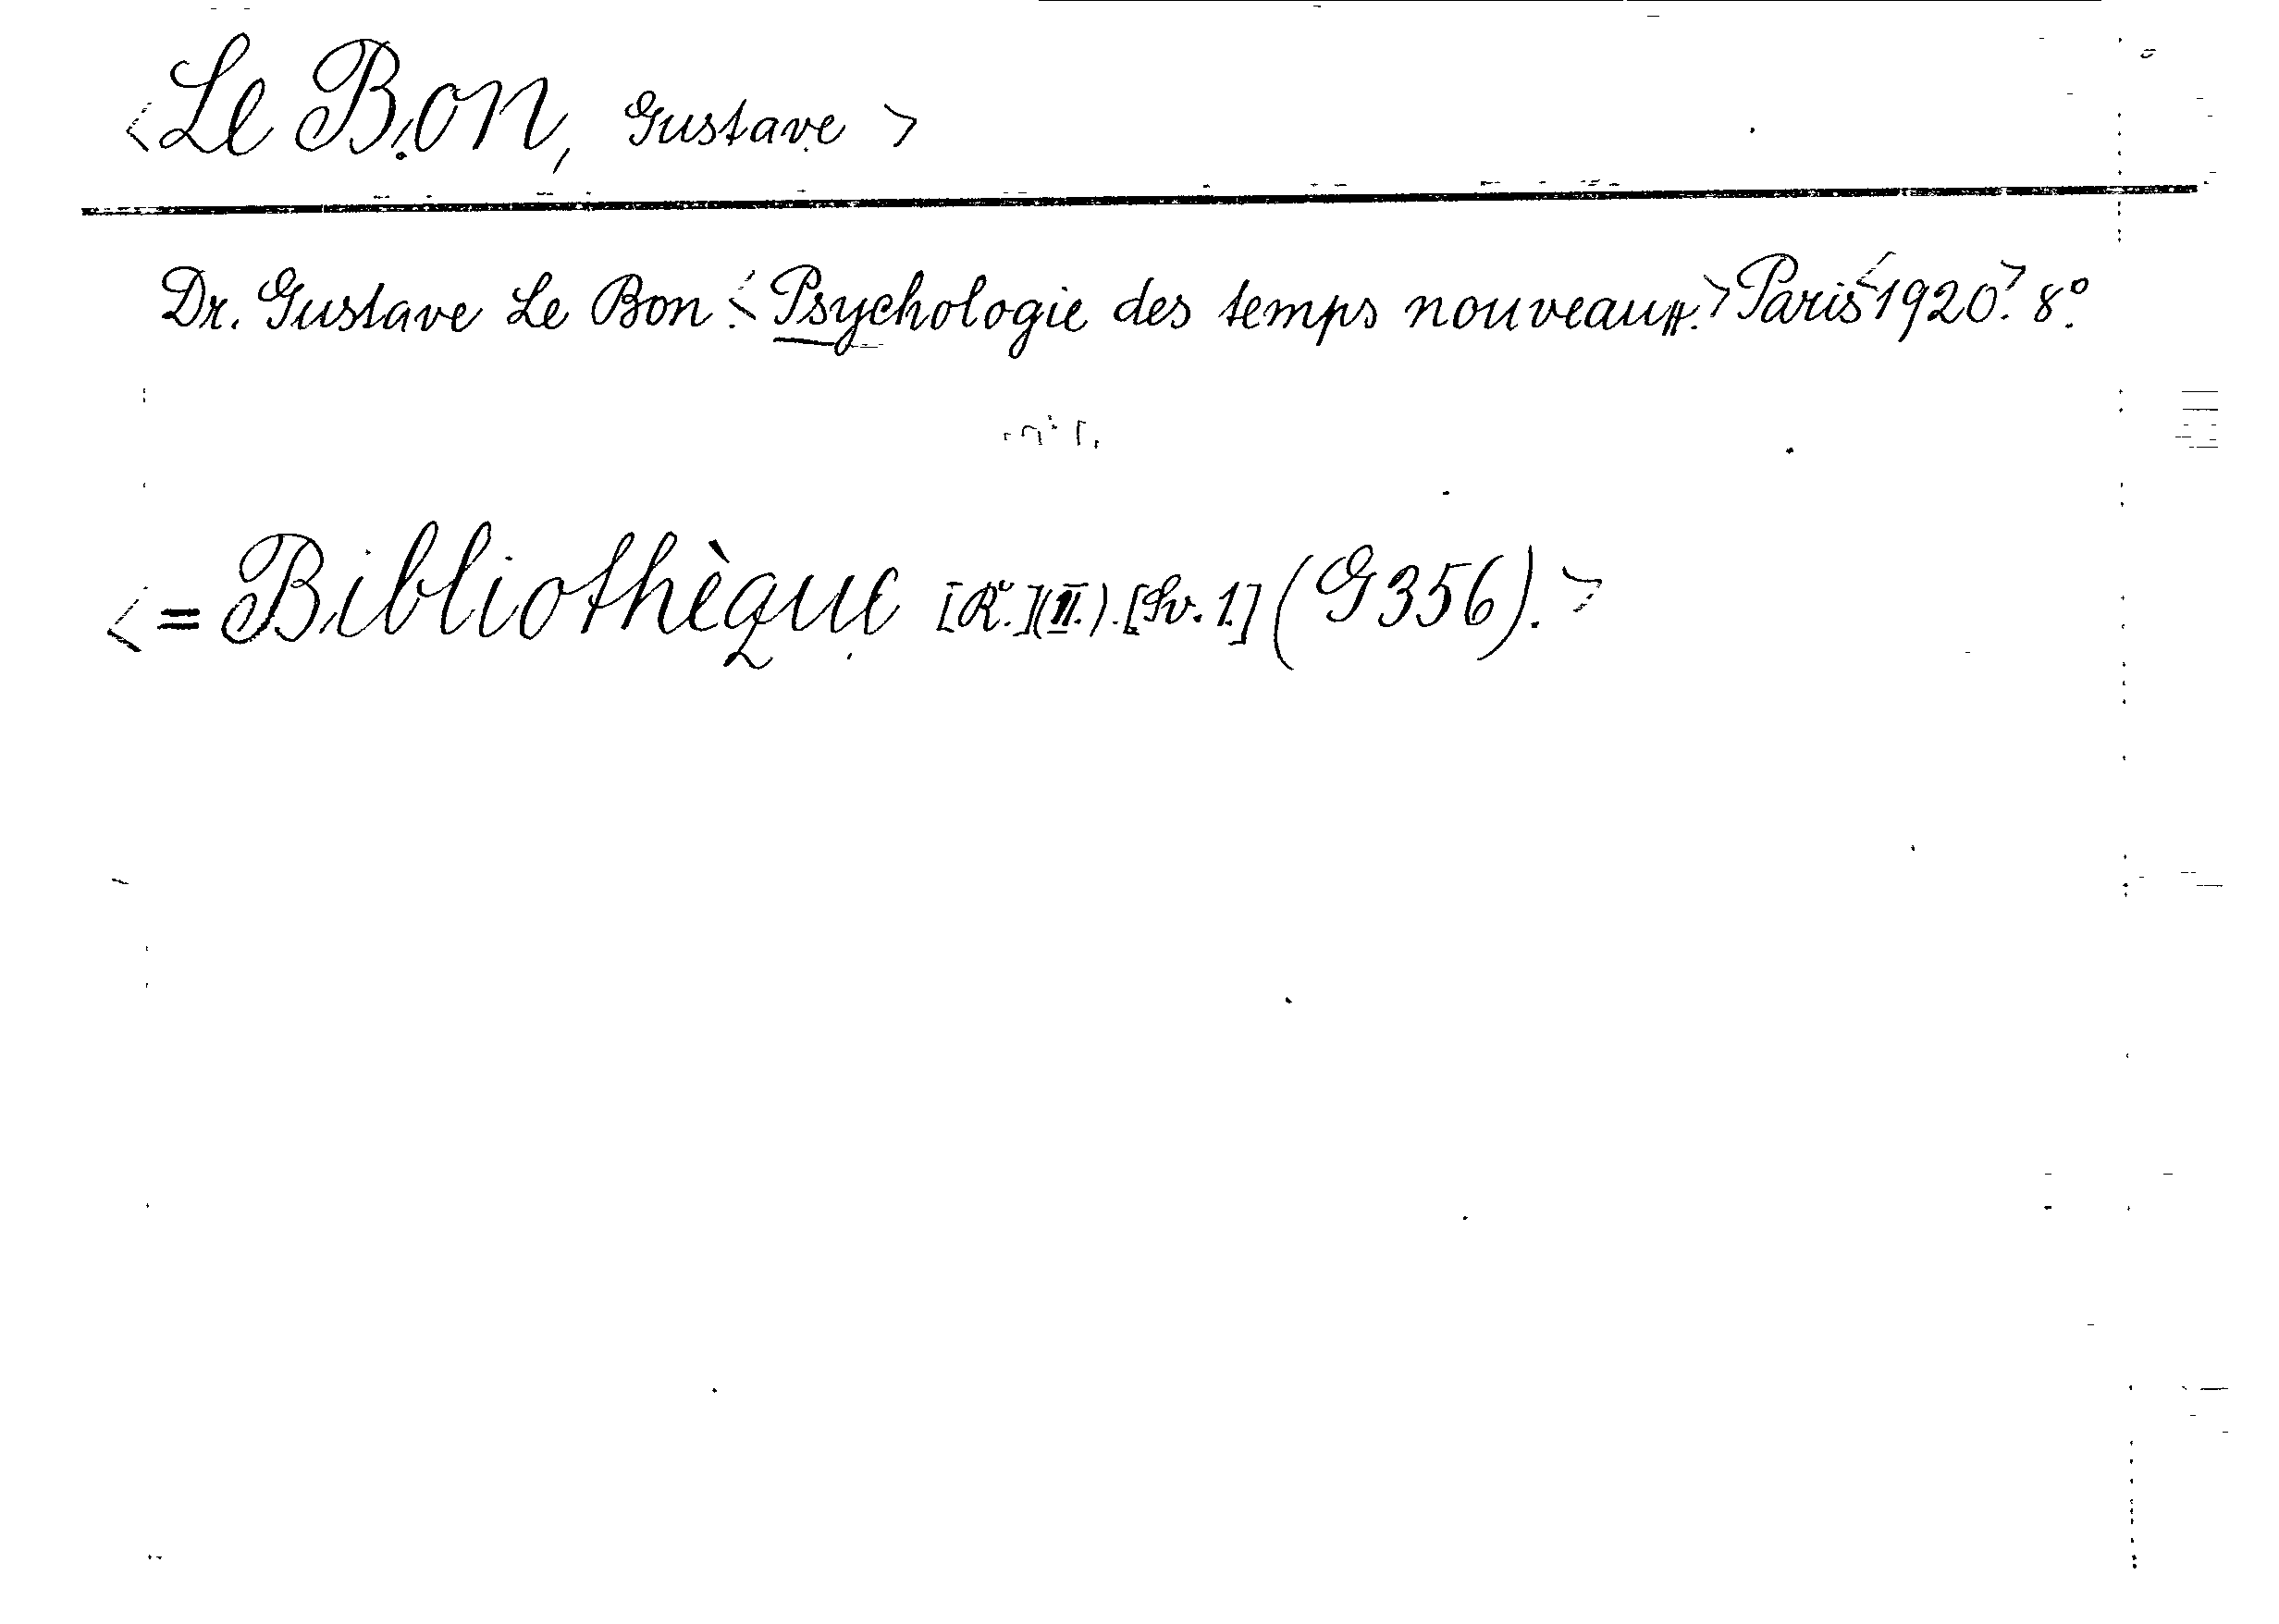 <Le Bon, Gustave>
Dr. Gustave Le Bon: <Psychologie des temps nouveaux.> Paris <1920>. 8°.
<= Bibliothèque [R.] (II.). [Sv. 1.] (G 356).>